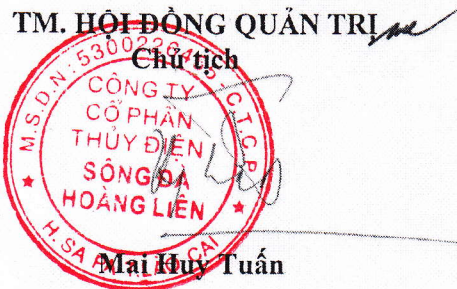 TM. HỘI ĐỒNG QUẢN TRỊ
Chủ tịch
M.S.D.N: C.T.C.P
CÔNG TY
CỔ PHẦN
THỦY ĐIỆN
SÔNG ĐÀ
HOÀNG LIÊN
H. SA PA CAI
Mai Huy Tuấn